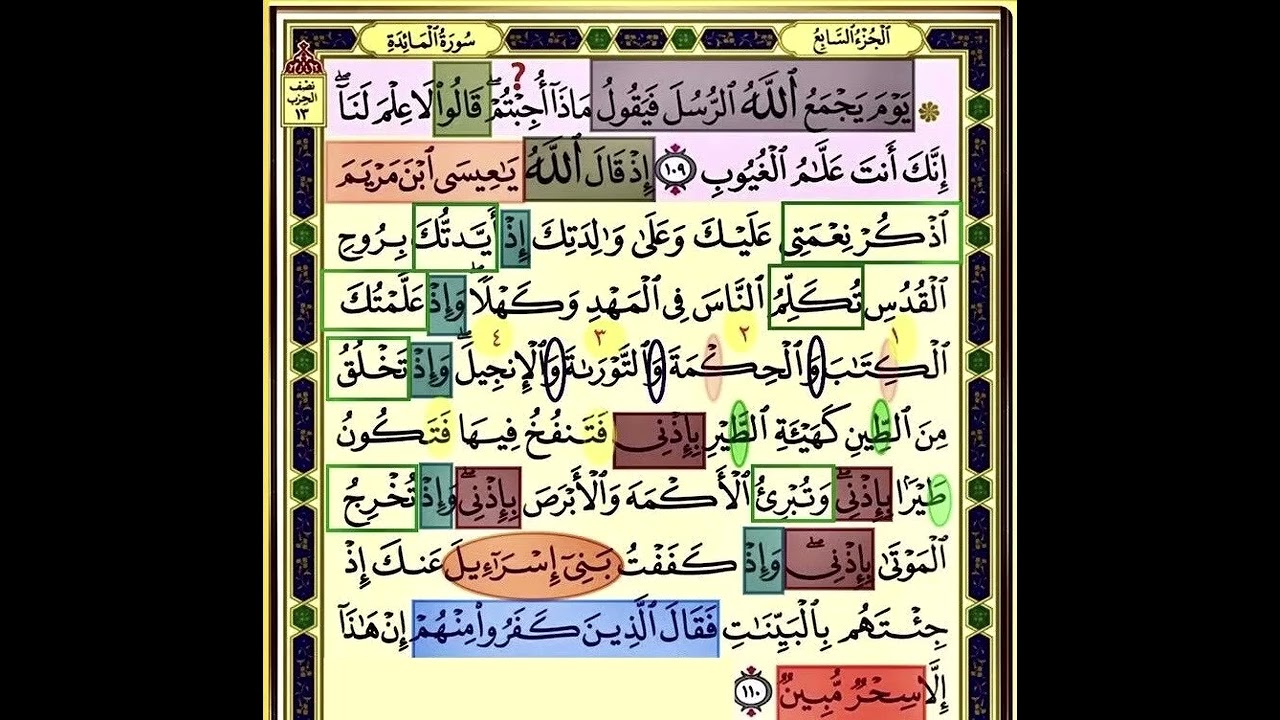 سُورَةُ الْمَائِدَةِ
الْجُزْءُ السَّابِعُ
نصف
الحزب
١٣
؟
۞ يَوْمَ يَجْمَعُ اللَّهُ الرُّسُلَ فَيَقُولُ مَاذَا أُجِبْتُمْ ۖ قَالُوا لَا عِلْمَ لَنَا ۖ
إِنَّكَ أَنتَ عَلَّامُ الْغُيُوبِ ١٠٩ إِذْ قَالَ اللَّهُ يَاعِيسَى ابْنَ مَرْيَمَ
اذْكُرْ نِعْمَتِي عَلَيْكَ وَعَلَىٰ وَالِدَتِكَ إِذْ أَيَّدتُّكَ بِرُوحِ
الْقُدُسِ تُكَلِّمُ النَّاسَ فِي الْمَهْدِ وَكَهْلًا ۖ وَإِذْ عَلَّمْتُكَ
١ ٢ ٣ ٤
الْكِتَابَ وَالْحِكْمَةَ وَالتَّوْرَاةَ وَالْإِنجِيلَ ۖ وَإِذْ تَخْلُقُ
مِنَ الطِّينِ كَهَيْئَةِ الطَّيْرِ بِإِذْنِي فَتَنفُخُ فِيهَا فَتَكُونُ
طَيْرًا بِإِذْنِي ۖ وَتُبْرِئُ الْأَكْمَهَ وَالْأَبْرَصَ بِإِذْنِي ۖ وَإِذْ تُخْرِجُ
الْمَوْتَىٰ بِإِذْنِي ۖ وَإِذْ كَفَفْتُ بَنِي إِسْرَائِيلَ عَنكَ إِذْ
جِئْتَهُم بِالْبَيِّنَاتِ فَقَالَ الَّذِينَ كَفَرُوا مِنْهُمْ إِنْ هَٰذَا
إِلَّا سِحْرٌ مُّبِينٌ ١١٠